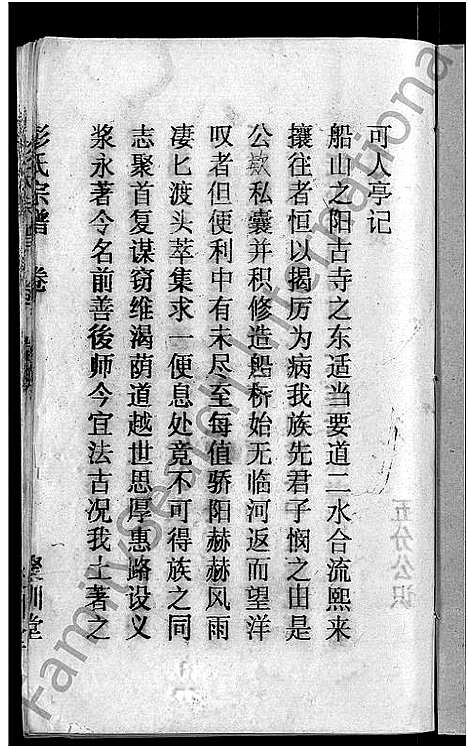 可人亭记
船山之阳古寺之东适当要道二水合流熙来
攘往者恒以揭厉为病我族先君子悯之由是
公欵私囊并积修造船桥始无临河返而望洋
叹者但便利中有未尽至每值骄阳赫赫风雨
凄匕渡头萃集求一便息处竟不可得族之同
志聚首复谋窃维渴荫道越世思厚惠路设义
浆永著令名前善後师今宜法古况我土著之
彭氏宗谱 卷
堂
五分公识
FamilySearch International